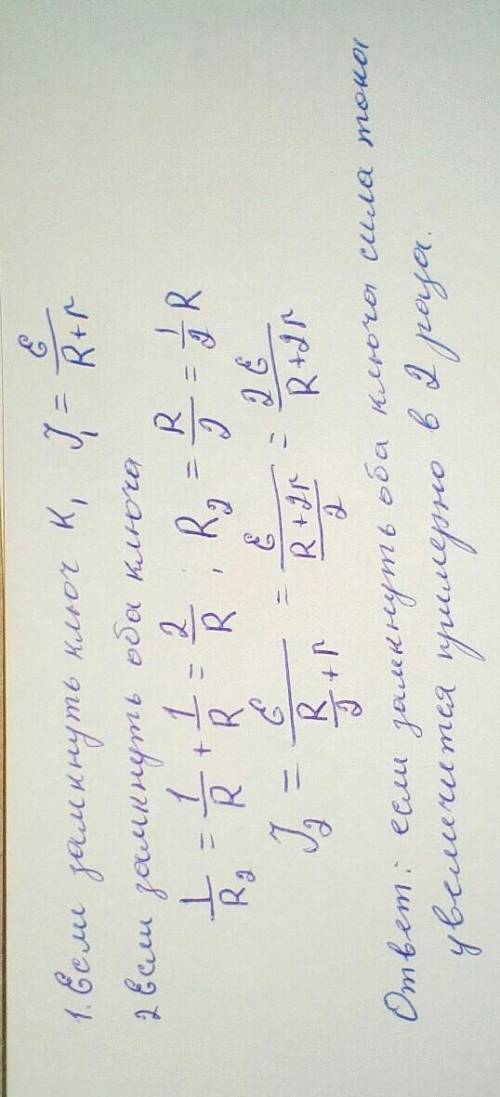 1. Если замкнуть ключ К₁ J₁ = ℰ/(R+r)
2 Если замкнуть оба ключа
1/R₂ = 1/R + 1/R = 2/R ; R₂ = R/2 = 1/2 R
J₂ = ℰ/(R/2 + r) = ℰ/((R+2r)/2) = 2ℰ/(R+2r)
Ответ: если замкнуть оба ключа сила тока
увеличится примерно в 2 раза.